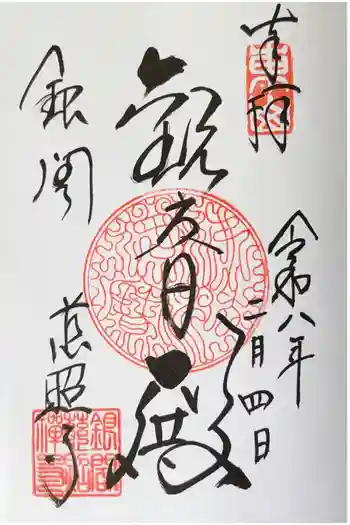 奉拝
令和八年二月四日
観音殿
銀閣
慈照寺